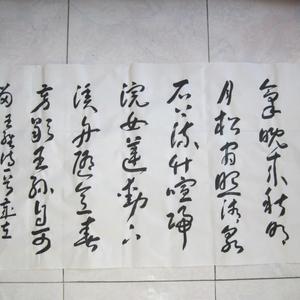 氣晚來秋明
月松間照清泉
石上流竹喧歸
浣女蓮動下
漁舟隨意春
芳歇王孫自可
留王維詩一首